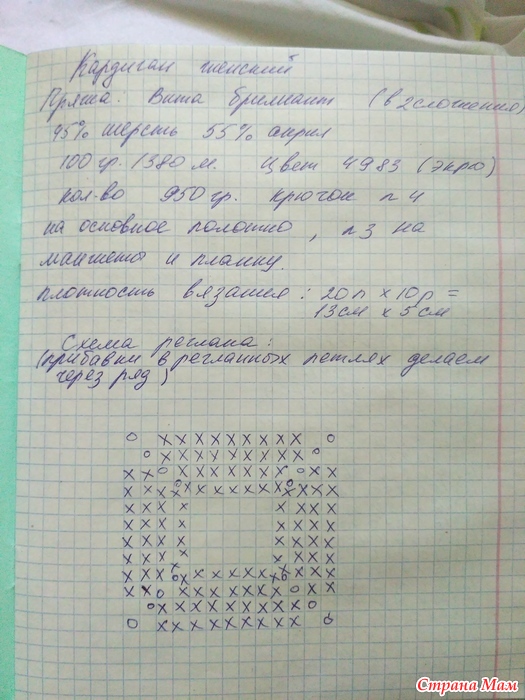 Кардиган женский
Пряжа. Вита бриллиант (в 2 сложения)
45% шерсть 55% акрил
100 гр. / 380 м. Цвет 4983 (экрю)
кол-во 950 гр. крючок n 4
на основное полотно, n 3 на
манжеты и планку.
плотность вязания: 20 п х 10 р =
13 см х 5 см
Схема реглана:
(прибавки в регланных петлях делаем
через ряд)
о х х х х х х х х х о
о х х х х х х х х х о
х х о х х х х х х х о х х
х х х х о х х х х х х х о х х х х
х х х х х х х х
х х х х х х х х
х х х х х х х х
х х х х х х х х
х х х х о х х х х х х х о х х х х
х х о х х х х х х х о х х
о х х х х х х х х х о
о х х х х х х х х х о
Страна Мам